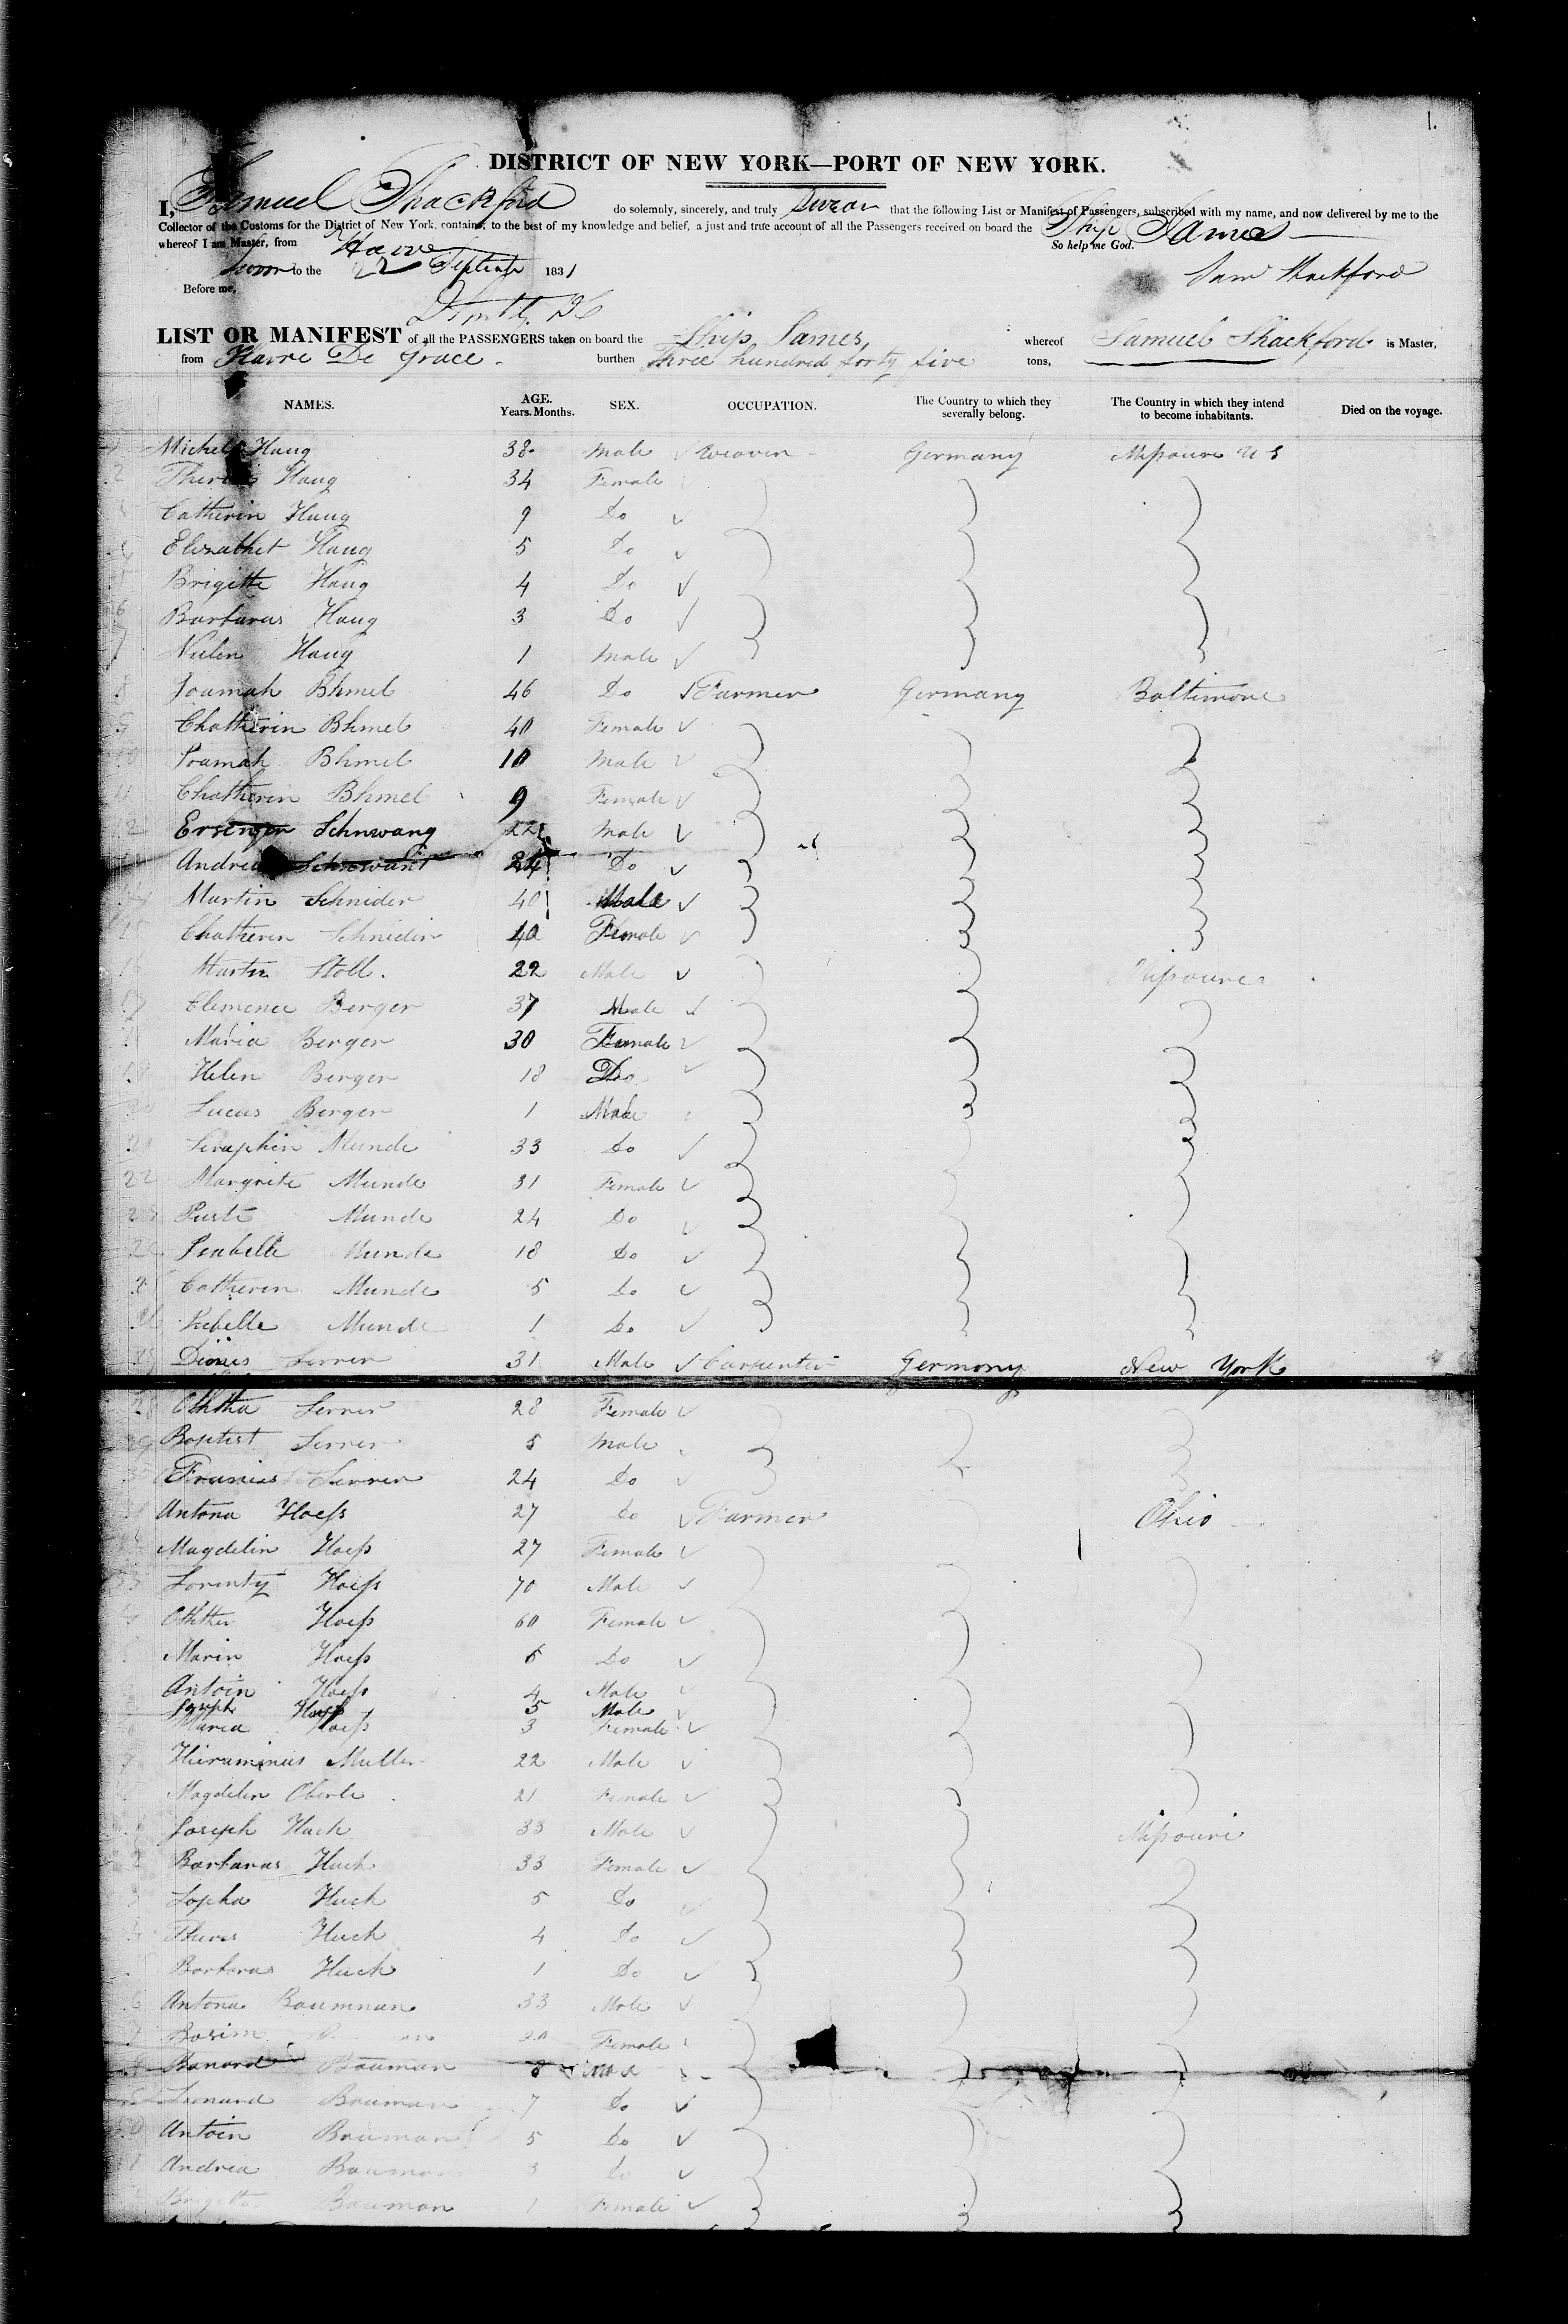 1.
DISTRICT OF NEW YORK—PORT OF NEW YORK.
I, Samuel Shackford do solemnly, sincerely, and truly Swear that the following List or Manifest of Passengers, subscribed with my name, and now delivered by me to the
Collector of the Customs for the District of New York, contains, to the best of my knowledge and belief, a just and true account of all the Passengers received on board the Ship James
whereof I am Master, from Havre So help me God.
Sworn to the 22 September 1831 Sam Shackford
Before me,
LIST OR MANIFEST of all the PASSENGERS taken on board the Ship James, whereof Samuel Shackford is Master,
from Havre De Grace. burthen Three hundred forty five tons,
NAMES. AGE. Years. Months. SEX. OCCUPATION. The Country to which they severally belong. The Country in which they intend to become inhabitants. Died on the voyage.
Michel Haug 38 Male Weaver Germany Missoure U S
2 Haug 34 Female
Catherin Haug 9 Do
Elizabhet Haug 5 Do
Brigitte Haug 4 Do
6 Barbaras Haug 3 Do
7 Haug 1 Male
8 Joamah Bhmel 46 Do Farmer Germany Baltimore
9 Chatherin Bhmel 40 Female
10 Joamah Bhmel 10 Male
11 Chatherin Bhmel 9 Female
12 Schnwang 22 Male
Andrea 24 Do
14 Martin Schnider 40 Male
15 Chatheren Schnider 40 Female
16 Martin Stoll. 22 Male Missoure
17 Clemence Berger 37 Male
Maria Berger 30 Female
19 Helen Berger 18 Do
20 Lucus Berger 1 Male
21 Seraphin Munde 33 Do
22 Margrite Munde 31 Female
23 Munde 24 Do
Isabelle Munde 18 Do
25 Catheren Munde 5 Do
26 Munde 1 Do
Dionis Serrer 31 Male Carpenter Germany New York
28 Oththa Serrer 28 Female
29 Baptist Serrer 5 Male
30 Francis Serrer 24 Do
Antona Hoess 27 Do Farmer Ohio
Magdelin Hoess 27 Female
33 Lorenty Hoess 70 Male
Hoess 60 Female
Marin Hoess 6 Do
Antoin Hoess 4 Male
Joseph Hoess 5 Male
Maria Hoess 3 Female
Hieraminus Muller 22 Male
Magdelen Oberle 21 Female
Joseph Huck 33 Male Missouri
2 Barbaras Huck 33 Female
3 Sopha Huck 5 Do
4 Theres Huck 4 Do
Barbaras Huck 1 Do
6 Antona Baumnan 33 Male
Female
Banard Bauman 8 Male
Leonard Bauman 7 Do
Antoin Bauman 5 Do
Andrea Bauman 3 Do
Brigitta Bauman 1 Female